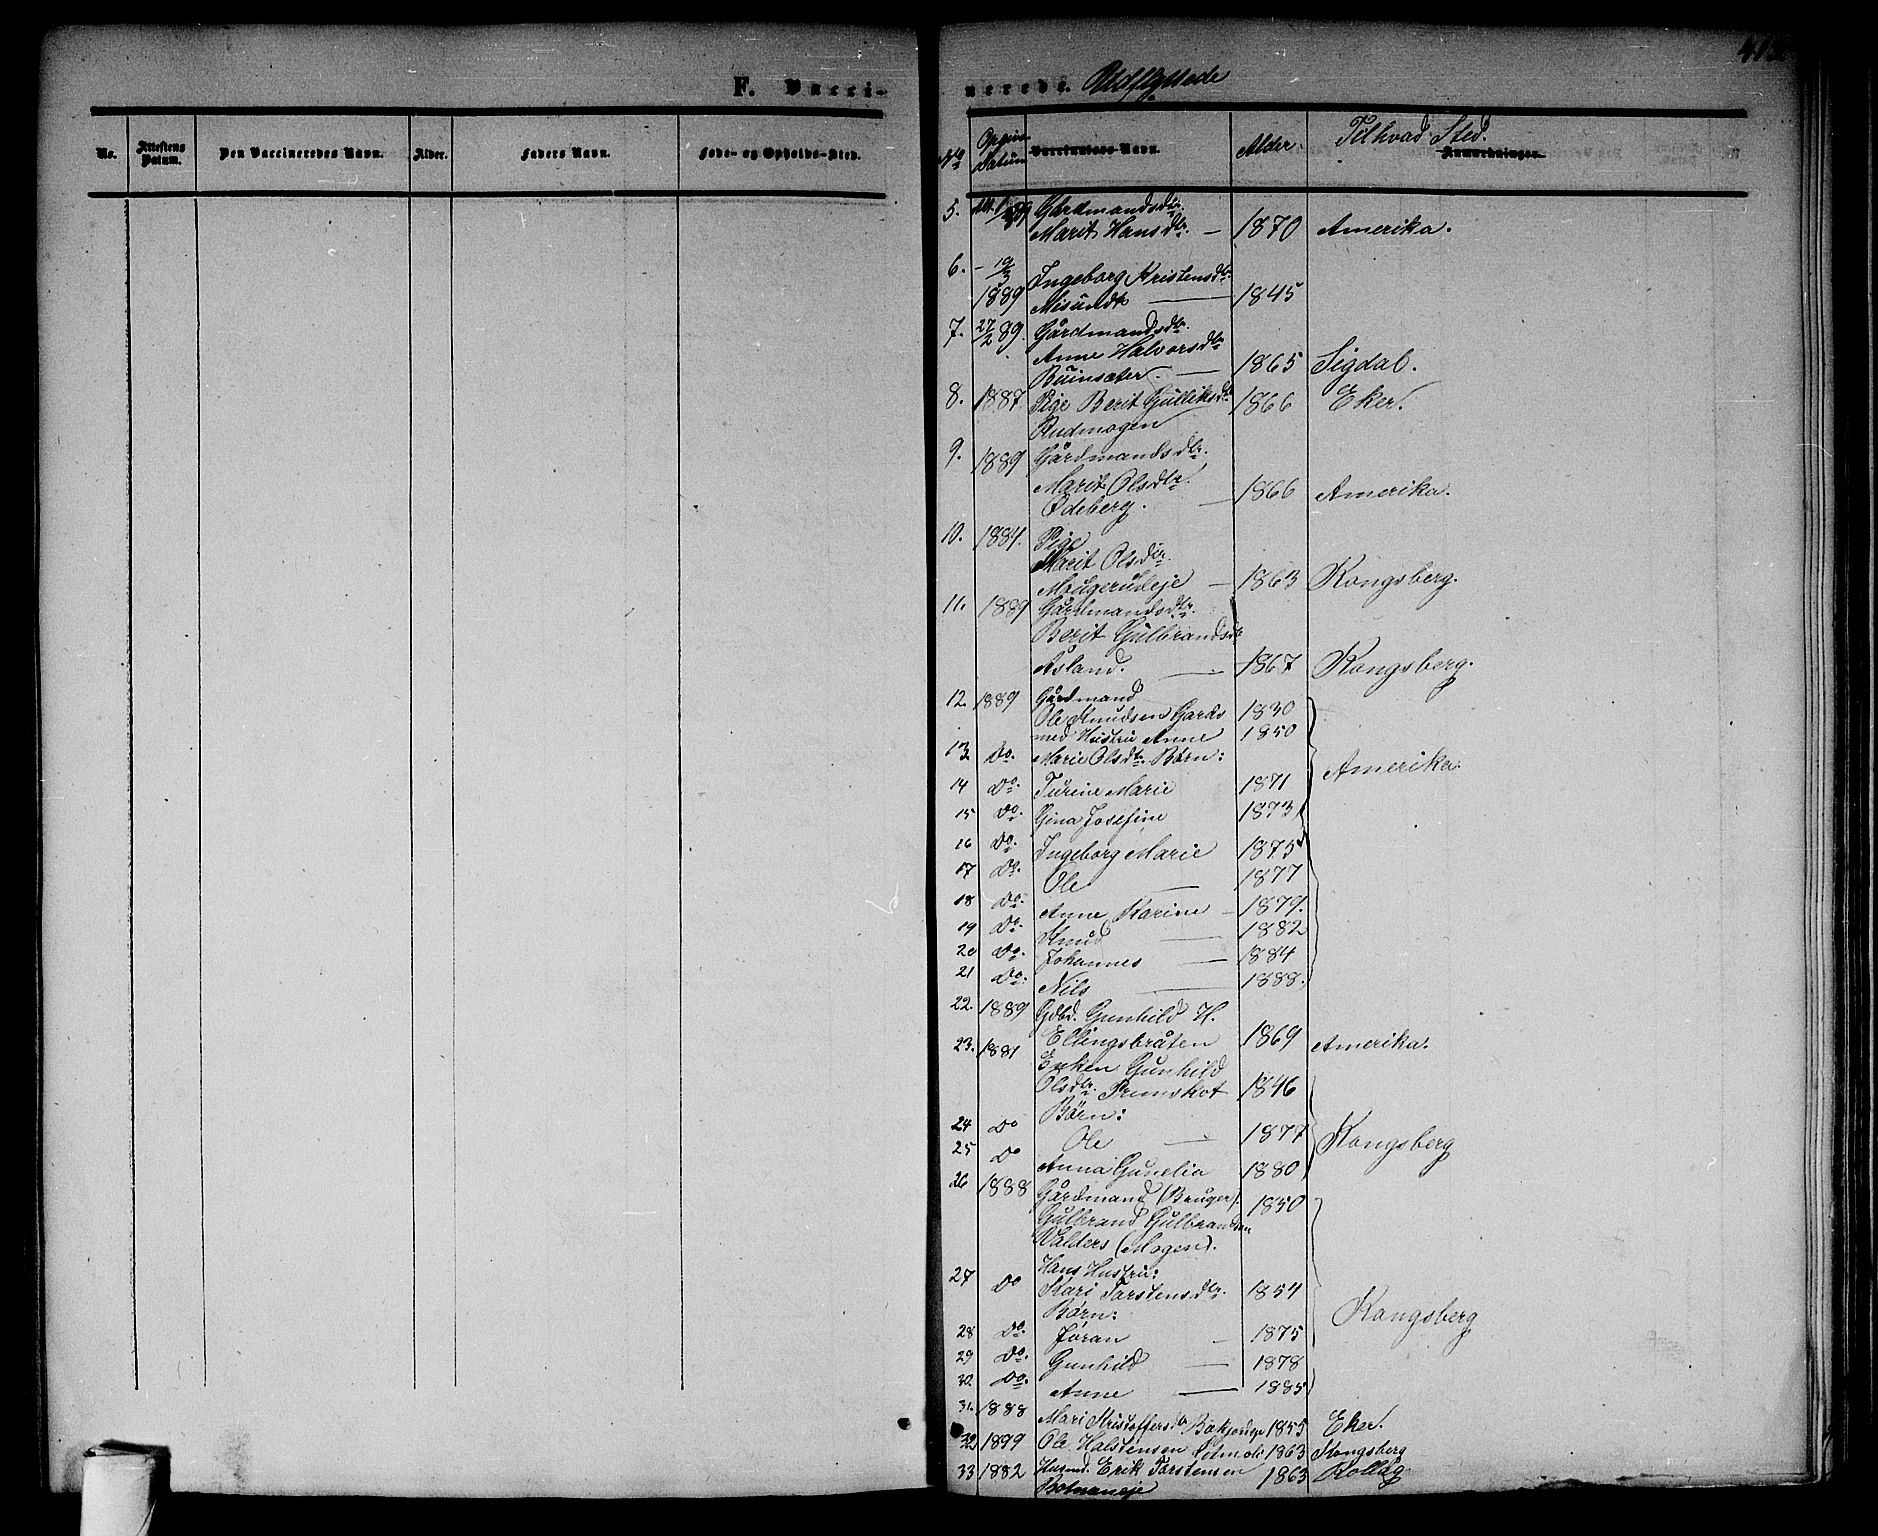 F. Vacci-
nerede. Udflyttede
No.
Attestens Datum.
Den Vaccineredes Navn.
Alder.
Faders Navn.
Føde- og Opholds-Sted.
No
Datum
Vaccinators Navn.
Alder.
Til hvad Sted.
Anmærkninger.
5. Gårdmandsdtr.
Marit Hansdtr. — 1870 Amerika.
6. - 19/3 1889 Ingeborg Kristensdtr.
— 1845
7. 27/2 89. Gårdmandsdtr.
Anne Halvorsdtr
Buinsæter. — 1865 Sigdal.
8. 1887 Pige Berit Gulliksdtr 1866 Eker.
Rudmogen
9. 1889 Gårdmandsdtr.
Marit Olsdtr.
Ødeberg. — 1866 Amerika.
10. 1884. Pige
Marit Olsdtr.
Mougerudeje — 1863 Kongsberg.
11. 1889 Gårdmandsdtr.
Berit Gulbrandsdtr
Åsland. — 1867 Kongsberg.
12. 1889 Gårdmand
Ole Knudsen Gards 1830
med Hustru Anne 1850
13 Do. Marie Olsdtr. Børn: Amerika
14 Do. Turine Marie 1871
15 Do. Gina Josefine 1873
16 Do. Ingeborg Marie 1875
17 Do. Ole — 1877
18 Do. Anne Karine — 1879.
19 Do. Knud — 1882
20 Do. Johannes — 1884
21 Do. Nils — 1888.
22. 1889 Gdbd. Gunhild H.
Ellingsbråten 1869 Amerika.
23. 1881 Enken Gunhild
Olsdtr. Prumskot 1846
Børn:
24 Do Ole — 1877 Kongsberg
25 Do Anna Gunelia 1880
26 1888 Gårdmand (Bruger). 1850
Gulbrand Gulbrandsen
Valders (Mogen).
27 Do Hans Hustru:
Kari Torstensdtr. 1854
Børn: Kongsberg
28 Do. Jøran — 1875
29 Do. Gunhild — 1878
30. Do. Anne — 1885
31. 1888 Mari Kristoffersdtr 1855 Eker.
32 1899 Ole Halstensen 1863 Kongsberg
33 1882 Husmd. Erik Torstensen 1863 Rollag
Botnaneje